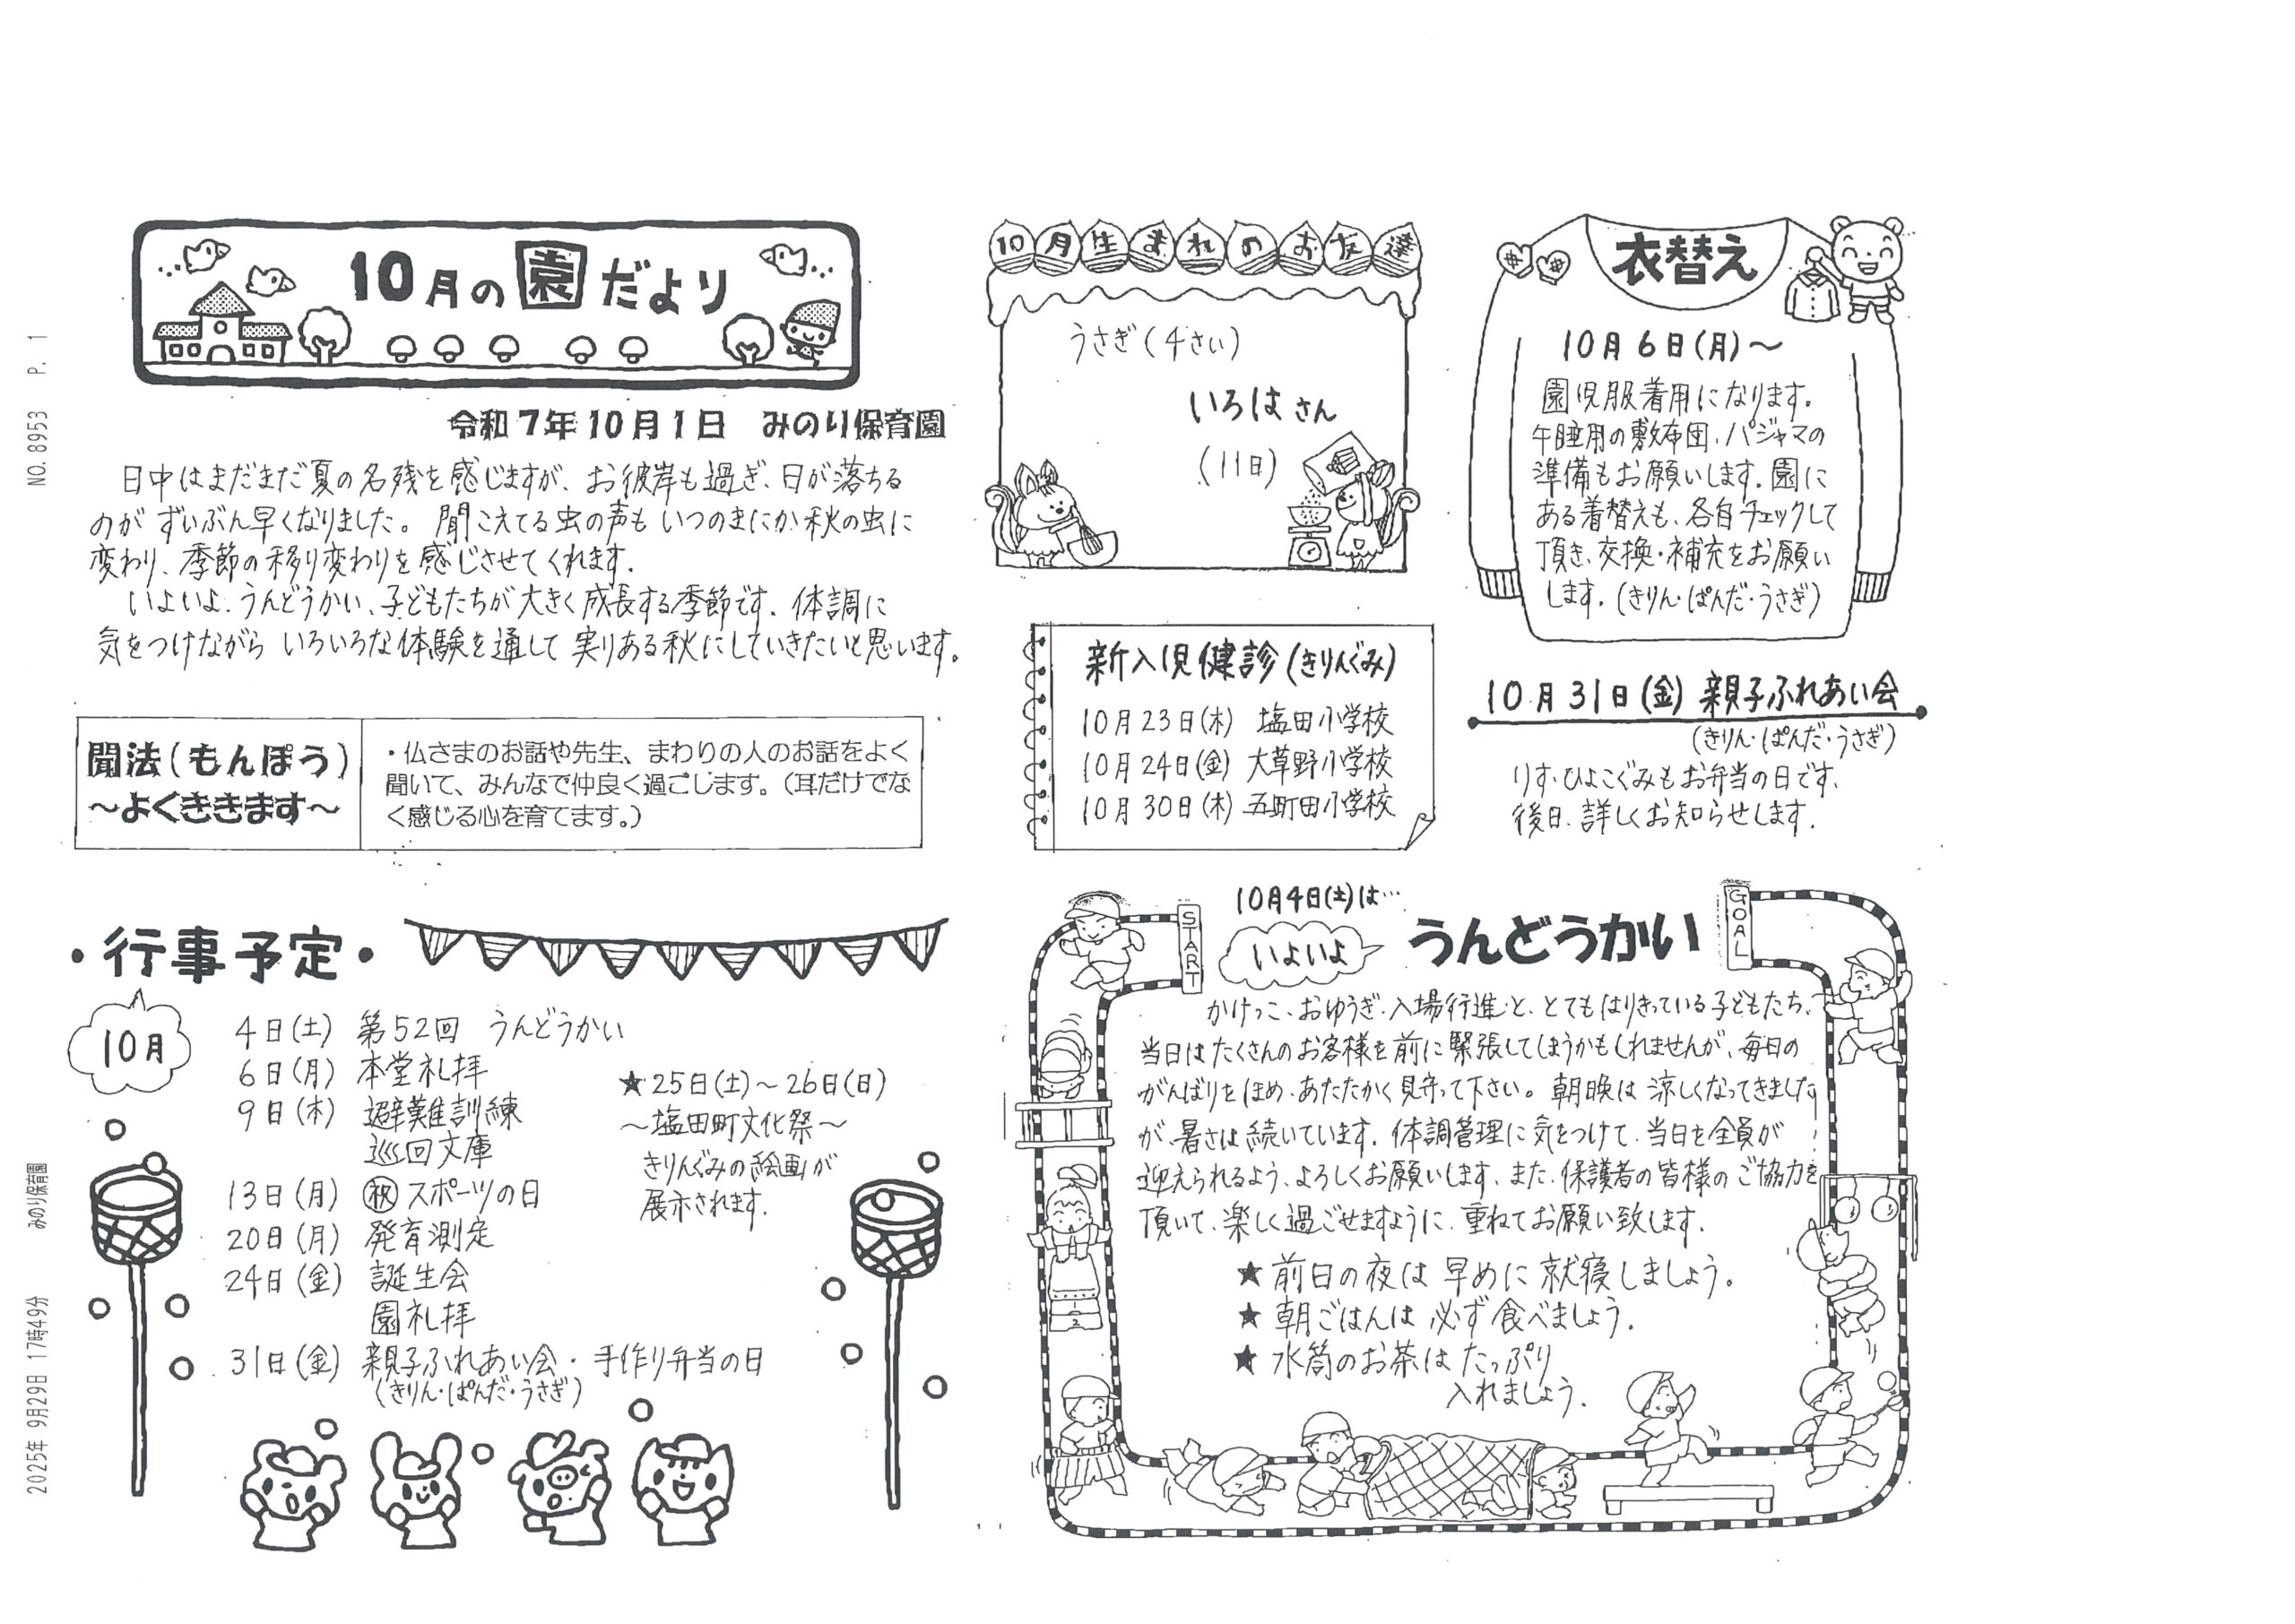 10月の園だより
令和7年10月1日 みのり保育園
日中はまだまだ夏の名残を感じますが、お彼岸も過ぎ、日が落ちる
のがずいぶん早くなりました。聞こえてる虫の声もいつのまにか秋の虫に
変わり、季節の移り変わりを感じさせてくれます。
いよいよ、うんどうかい、子どもたちが大きく成長する季節です。体調に
気をつけながらいろいろな体験を通して実りある秋にしていきたいと思います。
聞法(もんぽう)
~よくききます~
・仏さまのお話や先生、まわりの人のお話をよく
聞いて、みんなで仲良く過ごします。(耳だけでな
く感じる心を育てます。)
・行事予定・
10月
4日(土) 第52回 うんどうかい
6日(月) 本堂礼拝
9日(木) 避難訓練
巡回文庫
13日(月) ㊗スポーツの日
20日(月) 発育測定
24日(金) 誕生会
園礼拝
31日(金) 親子ふれあい会・手作り弁当の日
(きりん・ぱんだ・うさぎ)
★25日(土)~26日(日)
~塩田町文化祭~
きりんぐみの絵画が
展示されます。
10月生まれのお友達
うさぎ(4さい)
いろはさん
(11日)
衣替え
10月6日(月)~
園児服着用になります。
午睡用の敷布団、パジャマの
準備もお願いします。園に
ある着替えも、各自チェックして
頂き、交換・補充をお願い
します。(きりん・ぱんだ・うさぎ)
新入児健診(きりんぐみ)
10月23日(木) 塩田小学校
10月24日(金) 大草野小学校
10月30日(木) 五町田小学校
10月31日(金) 親子ふれあい会
(きりん・ぱんだ・うさぎ)
りす・ひよこぐみもお弁当の日です。
後日、詳しくお知らせします。
10月4日(土)は…
いよいよ
うんどうかい
START
GOAL
かけっこ、おゆうぎ、入場行進と、とてもはりきっている子どもたち。
当日はたくさんのお客様を前に緊張してしまうかもしれませんが、毎日の
がんばりをほめ、あたたかく見守って下さい。朝晩は涼しくなってきました
が、暑さは続いています。体調管理に気をつけて、当日を全員が
迎えられるよう、よろしくお願いします。また、保護者の皆様のご協力を
頂いて、楽しく過ごせますように、重ねてお願い致します。
★前日の夜は早めに就寝しましょう。
★朝ごはんは必ず食べましょう。
★水筒のお茶はたっぷり
入れましょう。
2025年 9月29日 17時49分 みのり保育園 NO. 8953 P. 1